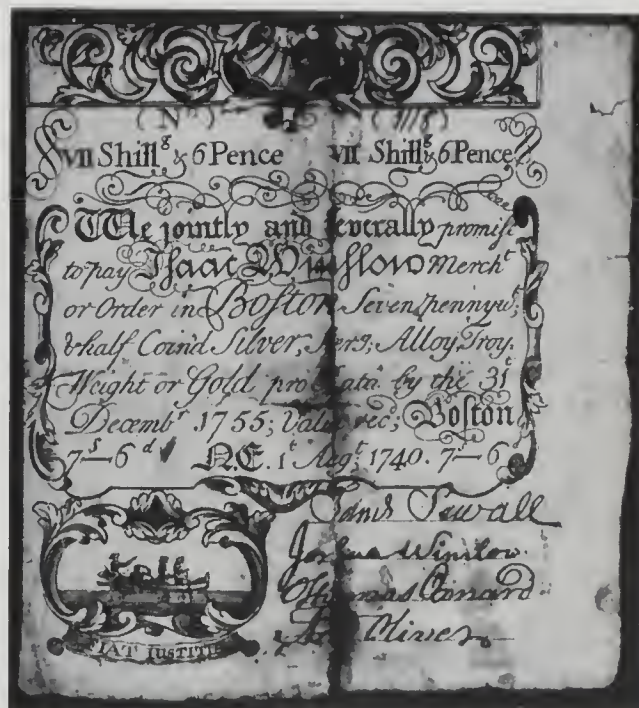 (No) (1118)
VII Shillgs & 6 Pence VII Shillgs & 6 Pence
We jointly and severally promise
to pay Isaac Winslow Mercht
or Order in Boston Seven pennywt:
& half Coin'd Silver, Sterg; Alloy, Troy
Weight or Gold pro Rata by the 31t
Decembr 1755; Value recd; Boston
7s—6d N.E. 1t Augt: 1740. 7s—6d
Saml Sewall
Joshua Winslow
Oliver
FIAT IUSTITIA